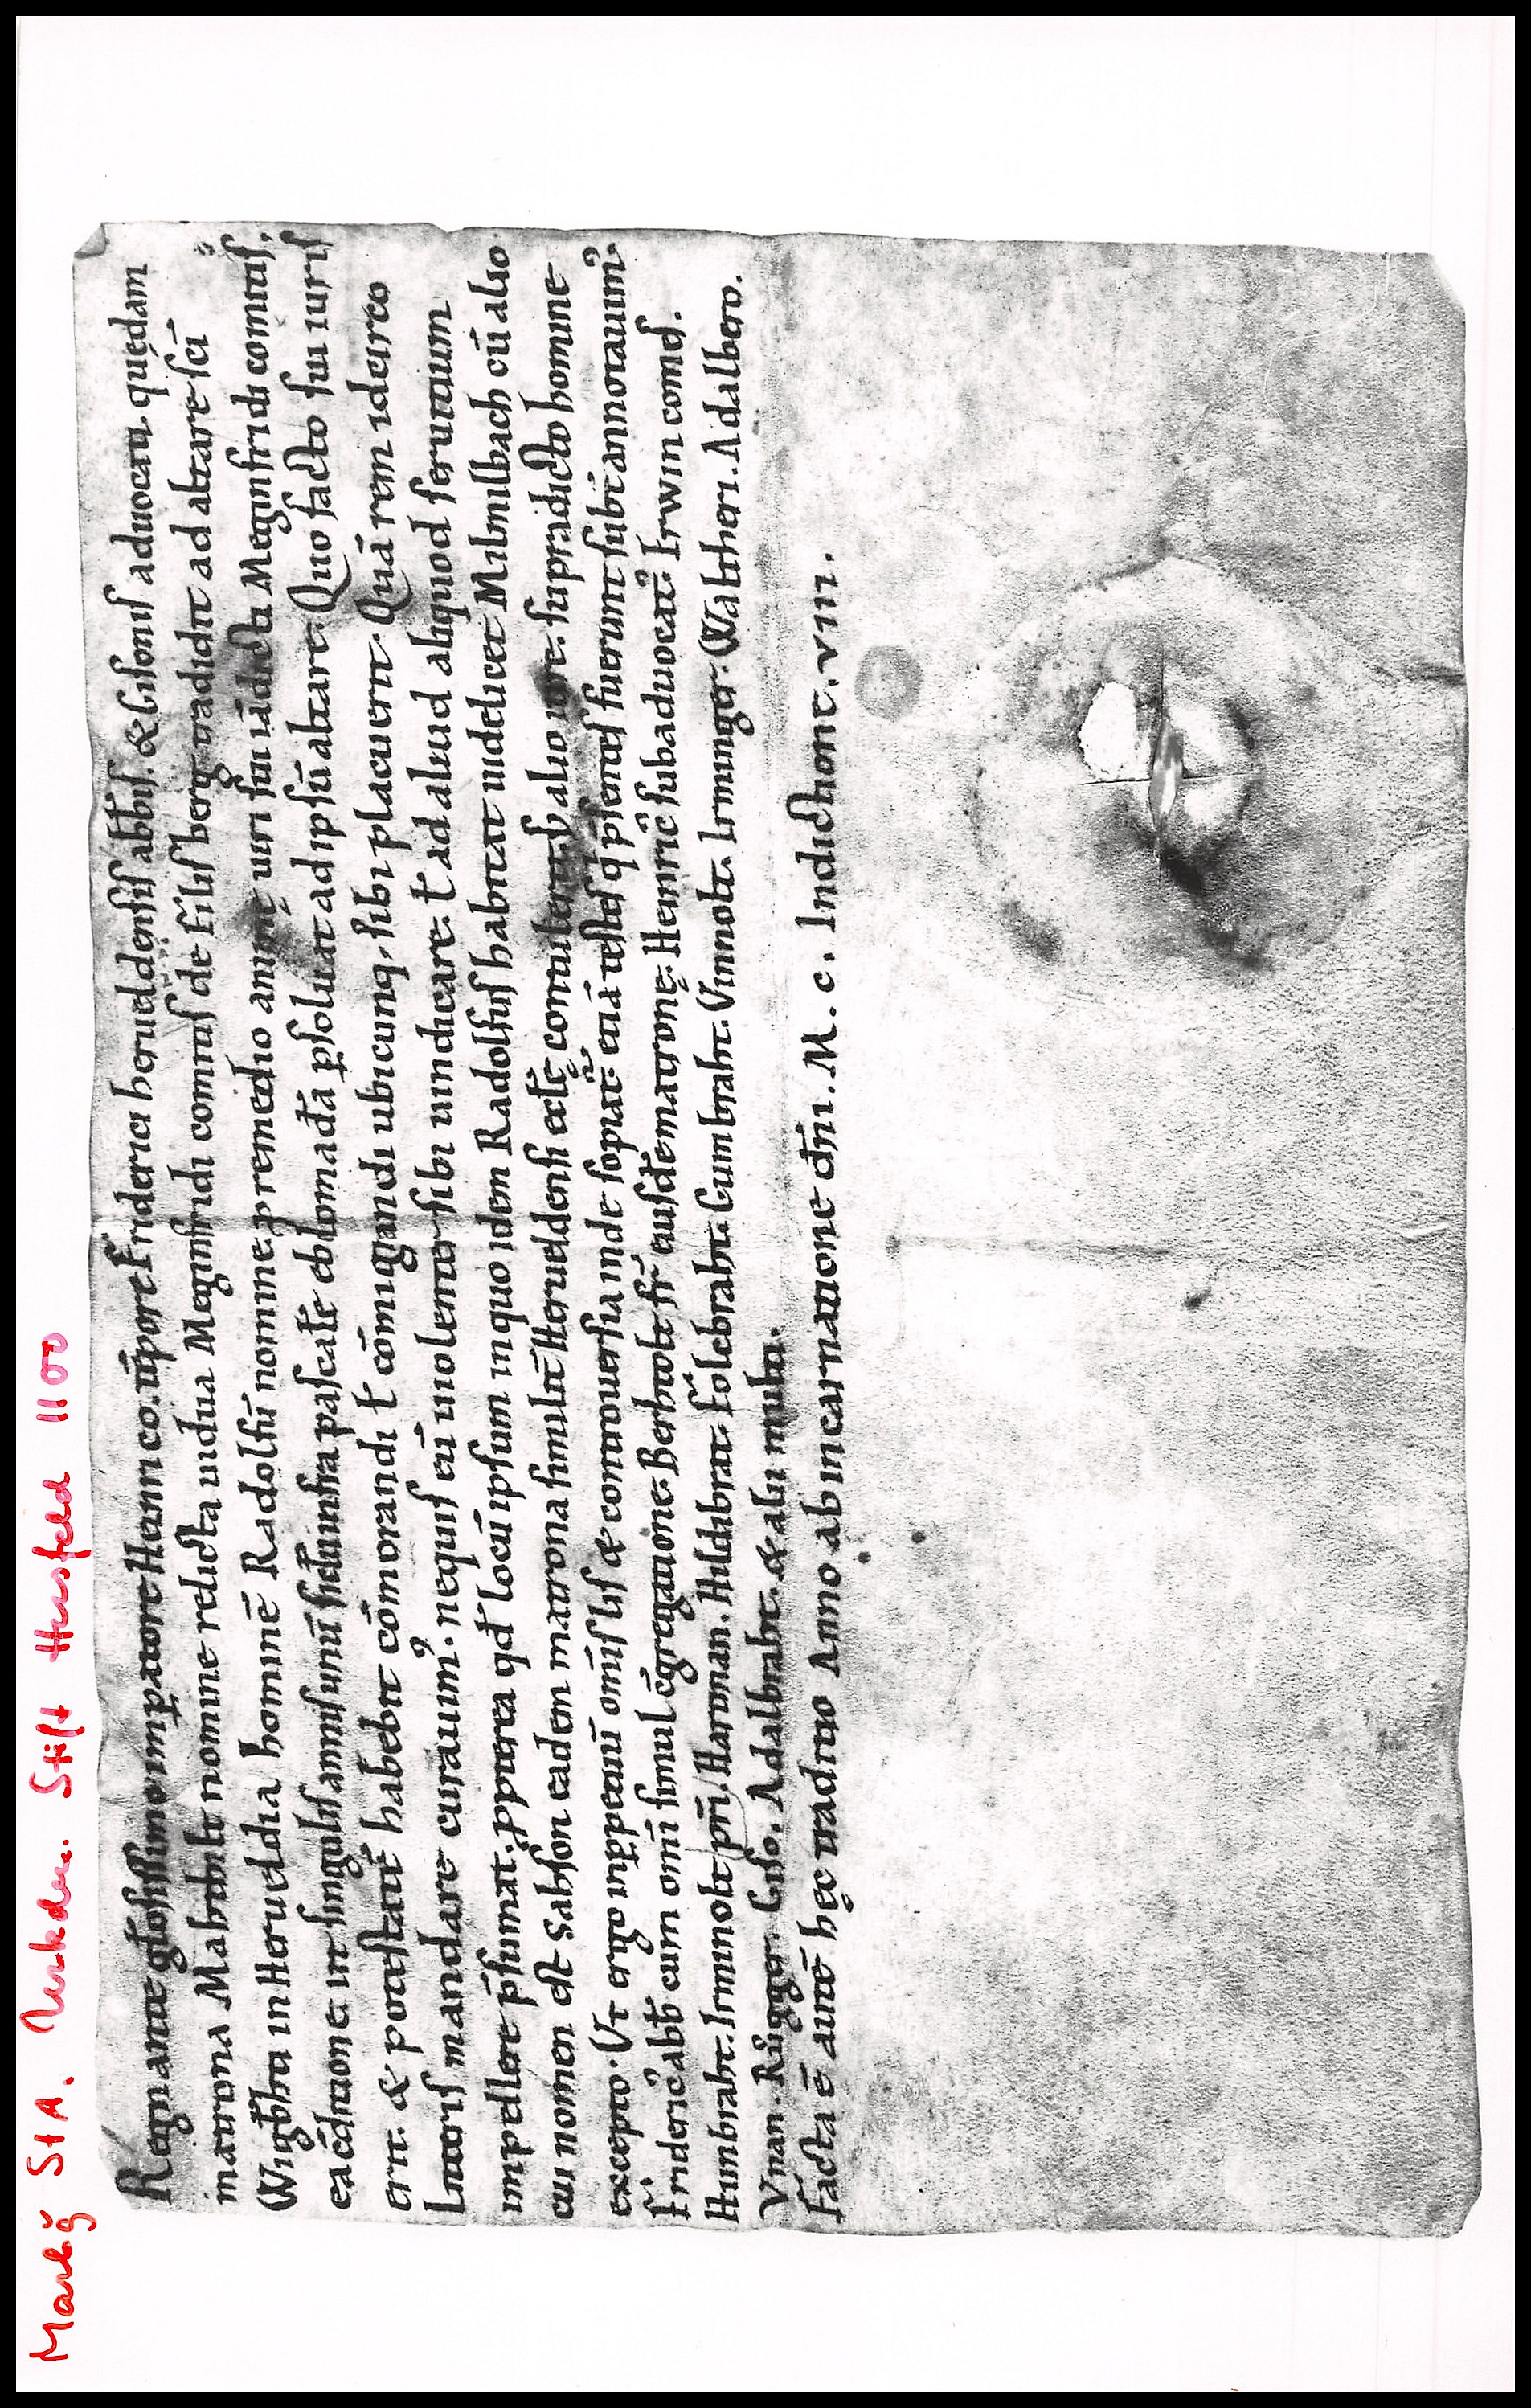 Marbg StA. Urkden. Stift Hersfeld 1100
Regnante gl'osissimo imp̲atore Heinrico. tēpore Friderici herueldensis abb̄is. & Gisonis aduocati. quędam
matrona Mahthilt nomine relicta uidua Meginfridi comitis de Filisberg tradidit ad altare sc̄i
Wigb̄hti in Herueldia hominē Radolfū nomine. p remedio animę uiri sui iādicti Meginfridi comitis.
ea c̄ditione. ut singulis annis unū sicłū infra pascałē ebdomadā p̲soluat ad ipsū altare. Quo facto sui iuris
erit. & potestatē habebit cōmorandi ł cōmigrandi ubicunq, sibi placuerit. Quā rem idcirco
Litteris mandare curauim᾿. nequis eū uiolenter sibi uindicare. ł ad aliud aliquod seruitium
impellere p̄sumat. ppterea qd̄ locū ipsum in quo idem Radolfus habitat uidelicet Milmilbach cū alio
cui nomen est Sahson eadem matrona similit̄ Herueldensi ęcłę contulerit. s; alio iure. supradicto homine
excepto. Ut ergo inp̲petuū om̄is lis & controuersia inde sopiat᷑. etiā testes q̇ p̄sentes fuerunt subt᷑ annotauim᾿.
Frideric᾿ abb̄ cum om̄i simul c̄gregatione. Berhtolt fr̄ eiusdē matronę. Henric᾿ subaduocat᾿. Erwin comes.
Humbraht. Irminolt pr̄i. Hartman. Hildibrat. Folcbraht. Gumbraht. Vinnolt. Irminger. Waltheri. Adalbero.
Vnan. Růgger. Giso. Adalbraht. & alii multi.
Facta ē autē hęc traditio Anno ab incarnatione dn̄i. M. c. Indictione. VIII.